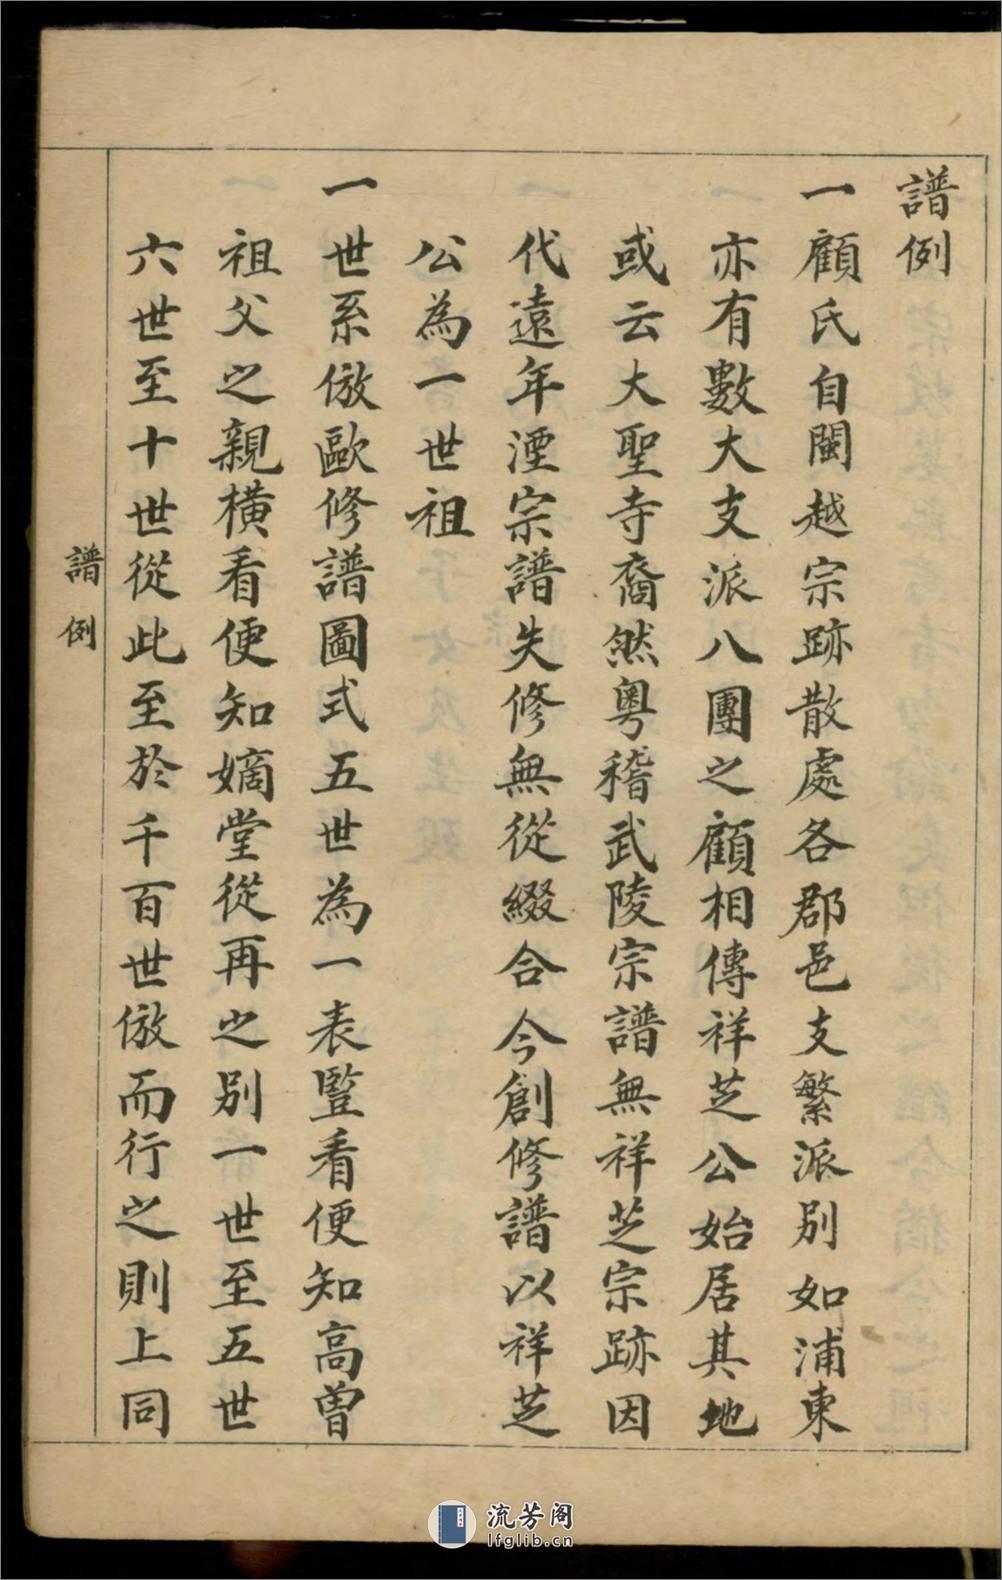 譜例
一顧氏自閩越宗跡散處各郡邑支繁派別如浦東
亦有數大支派八團之顧相傳祥芝公始居其地
或云大聖寺裔然粵稽武陵宗譜無祥芝宗跡因
代遠年湮宗譜失修無從綴合今創修譜以祥芝
公為一世祖
一世系倣歐修譜圖式五世為一表豎看便知高曾
祖父之親橫看便知嫡堂從再之別一世至五世
六世至十世從此至於千百世倣而行之則上同
譜例
流芳阁
lfglib.cn